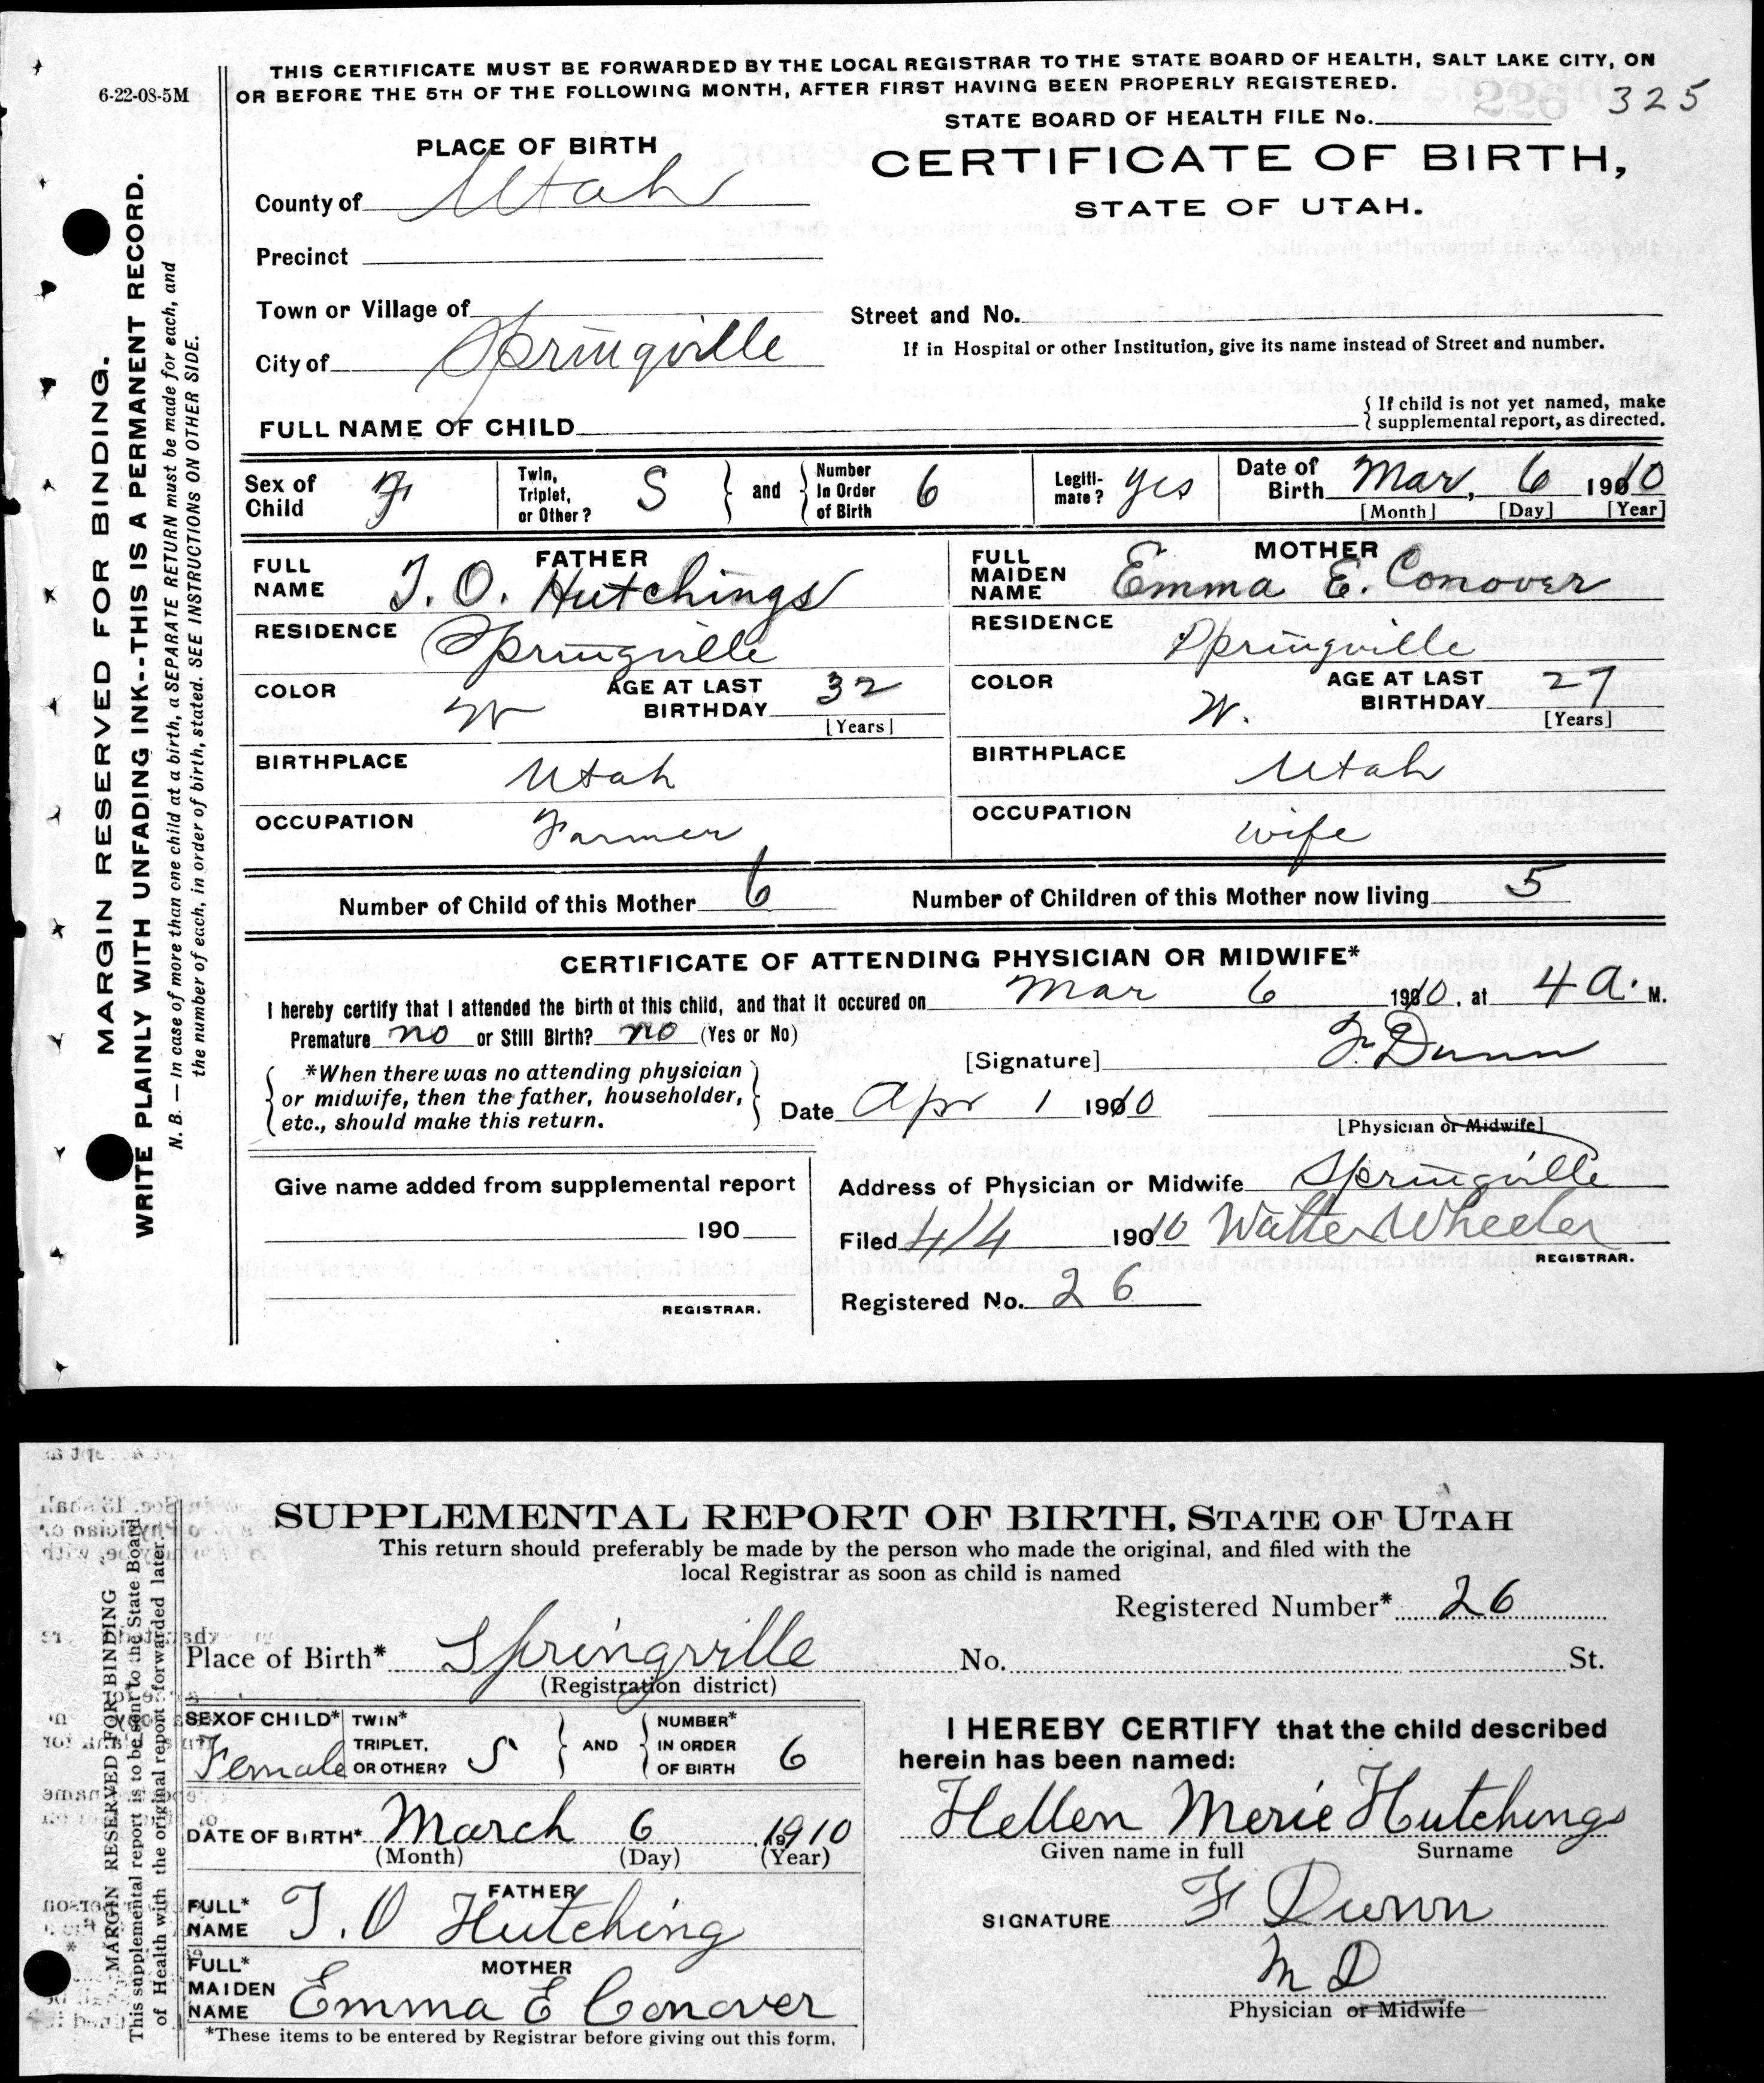 6-22-08-5M
THIS CERTIFICATE MUST BE FORWARDED BY THE LOCAL REGISTRAR TO THE STATE BOARD OF HEALTH, SALT LAKE CITY, ON
OR BEFORE THE 5TH OF THE FOLLOWING MONTH, AFTER FIRST HAVING BEEN PROPERLY REGISTERED.
325
STATE BOARD OF HEALTH FILE No.
MARGIN RESERVED FOR BINDING.
WRITE PLAINLY WITH UNFADING INK--THIS IS A PERMANENT RECORD.
N. B. — In case of more than one child at a birth, a SEPARATE RETURN must be made for each, and
the number of each, in order of birth, stated. SEE INSTRUCTIONS ON OTHER SIDE.
PLACE OF BIRTH
CERTIFICATE OF BIRTH,
STATE OF UTAH.
County of Utah
Precinct
Town or Village of
Street and No.
If in Hospital or other Institution, give its name instead of Street and number.
City of Springville
FULL NAME OF CHILD
{If child is not yet named, make
supplemental report, as directed.
Sex of Child F
Twin, Triplet, or Other? S } and { Number In Order of Birth 6
Legiti-mate? yes
Date of Birth Mar, 6 1910
[Month] [Day] [Year]
FATHER
FULL NAME T. O. Hutchings
RESIDENCE Springville
COLOR W
AGE AT LAST BIRTHDAY 32
[Years]
BIRTHPLACE Utah
OCCUPATION Farmer
MOTHER
FULL MAIDEN NAME Emma E. Conover
RESIDENCE Springville
COLOR W.
AGE AT LAST BIRTHDAY 27
[Years]
BIRTHPLACE Utah
OCCUPATION wife
Number of Child of this Mother 6 Number of Children of this Mother now living 5
CERTIFICATE OF ATTENDING PHYSICIAN OR MIDWIFE*
I hereby certify that I attended the birth of this child, and that it occured on Mar 6 1910, at 4 a. M.
Premature no or Still Birth? no (Yes or No)
[Signature] F. Dunn
*When there was no attending physician
or midwife, then the father, householder,
etc., should make this return.
Date Apr 1 1910
[Physician or Midwife]
Give name added from supplemental report
190
REGISTRAR.
Address of Physician or Midwife Springville
Filed 4/4 1910 Walter Wheeler
REGISTRAR.
Registered No. 26
SUPPLEMENTAL REPORT OF BIRTH, STATE OF UTAH
This return should preferably be made by the person who made the original, and filed with the
local Registrar as soon as child is named
Registered Number* 26
MARGIN RESERVED FOR BINDING
This supplemental report is to be sent to the State Board
of Health with the original report forwarded later.
Place of Birth* Springville No. St.
(Registration district)
SEX OF CHILD* Female
TWIN* TRIPLET, OR OTHER? S } AND { NUMBER* IN ORDER OF BIRTH 6
DATE OF BIRTH* March 6 1910
(Month) (Day) (Year)
FATHER
FULL* NAME T. O Hutching
MOTHER
FULL* MAIDEN NAME Emma E Conover
*These items to be entered by Registrar before giving out this form.
I HEREBY CERTIFY that the child described
herein has been named:
Hellen Merie Hutchings
Given name in full Surname
SIGNATURE F Dunn
M D
Physician or Midwife